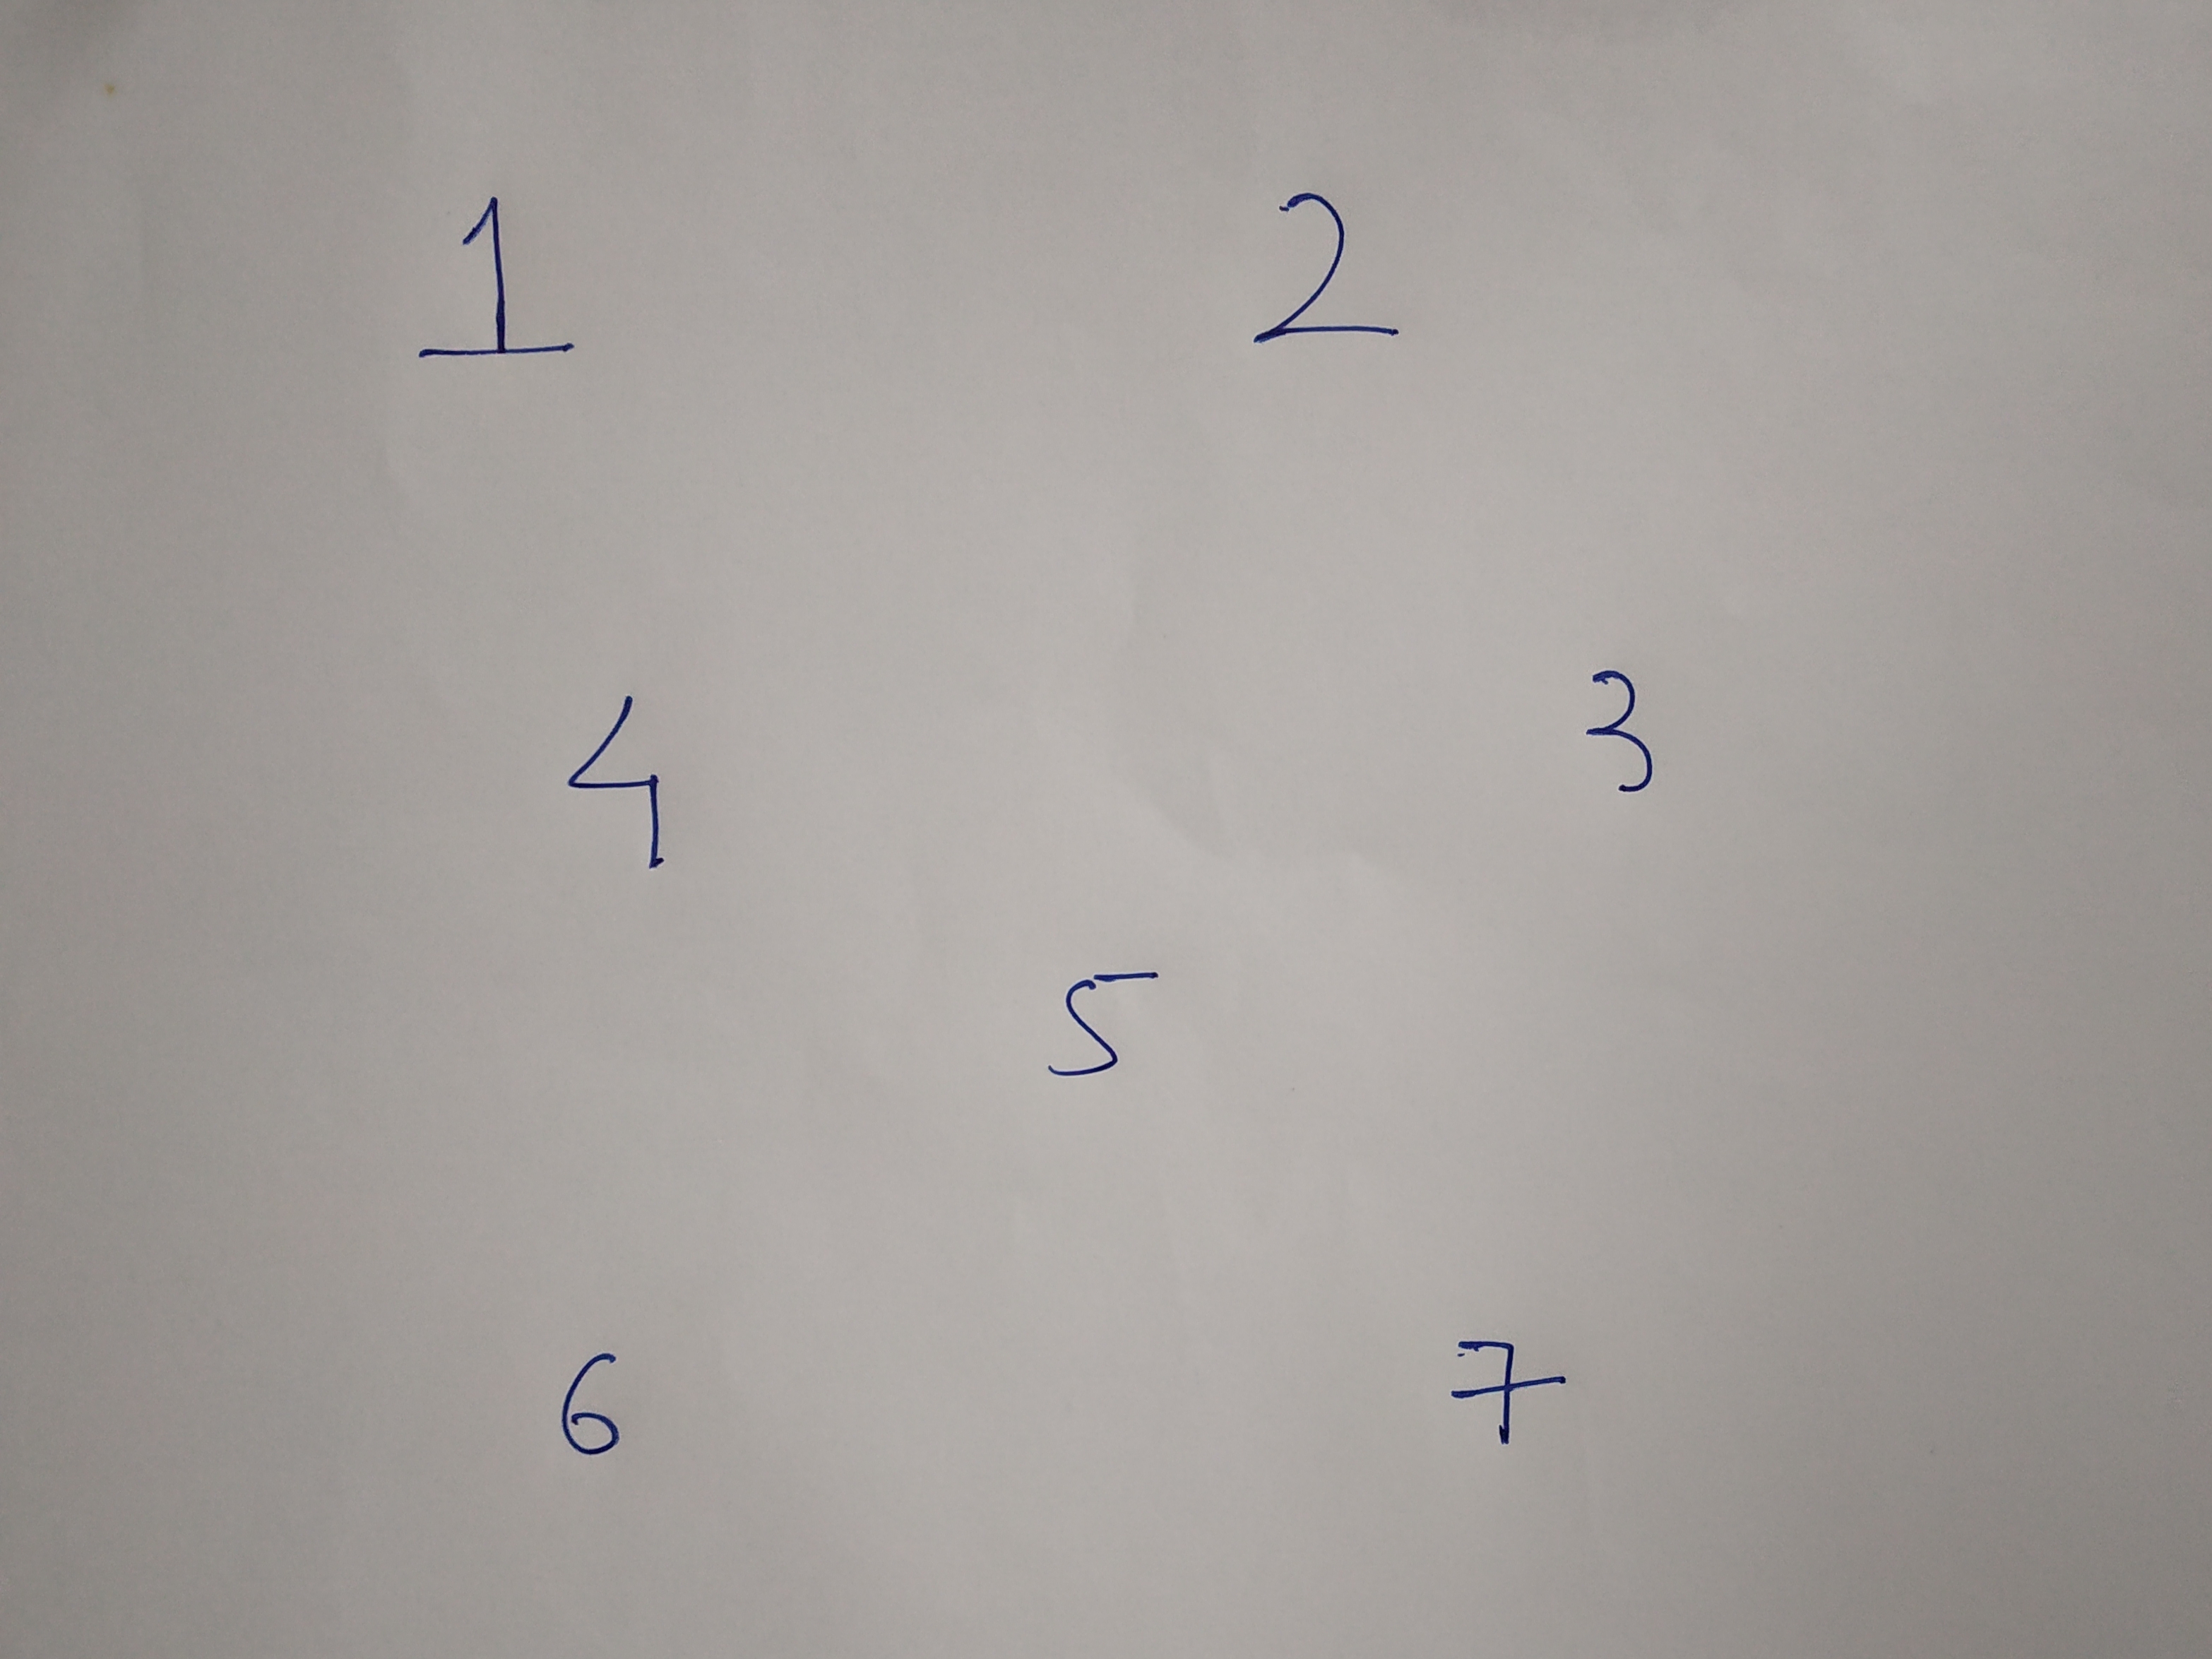 1 2
4 3
5
6 7